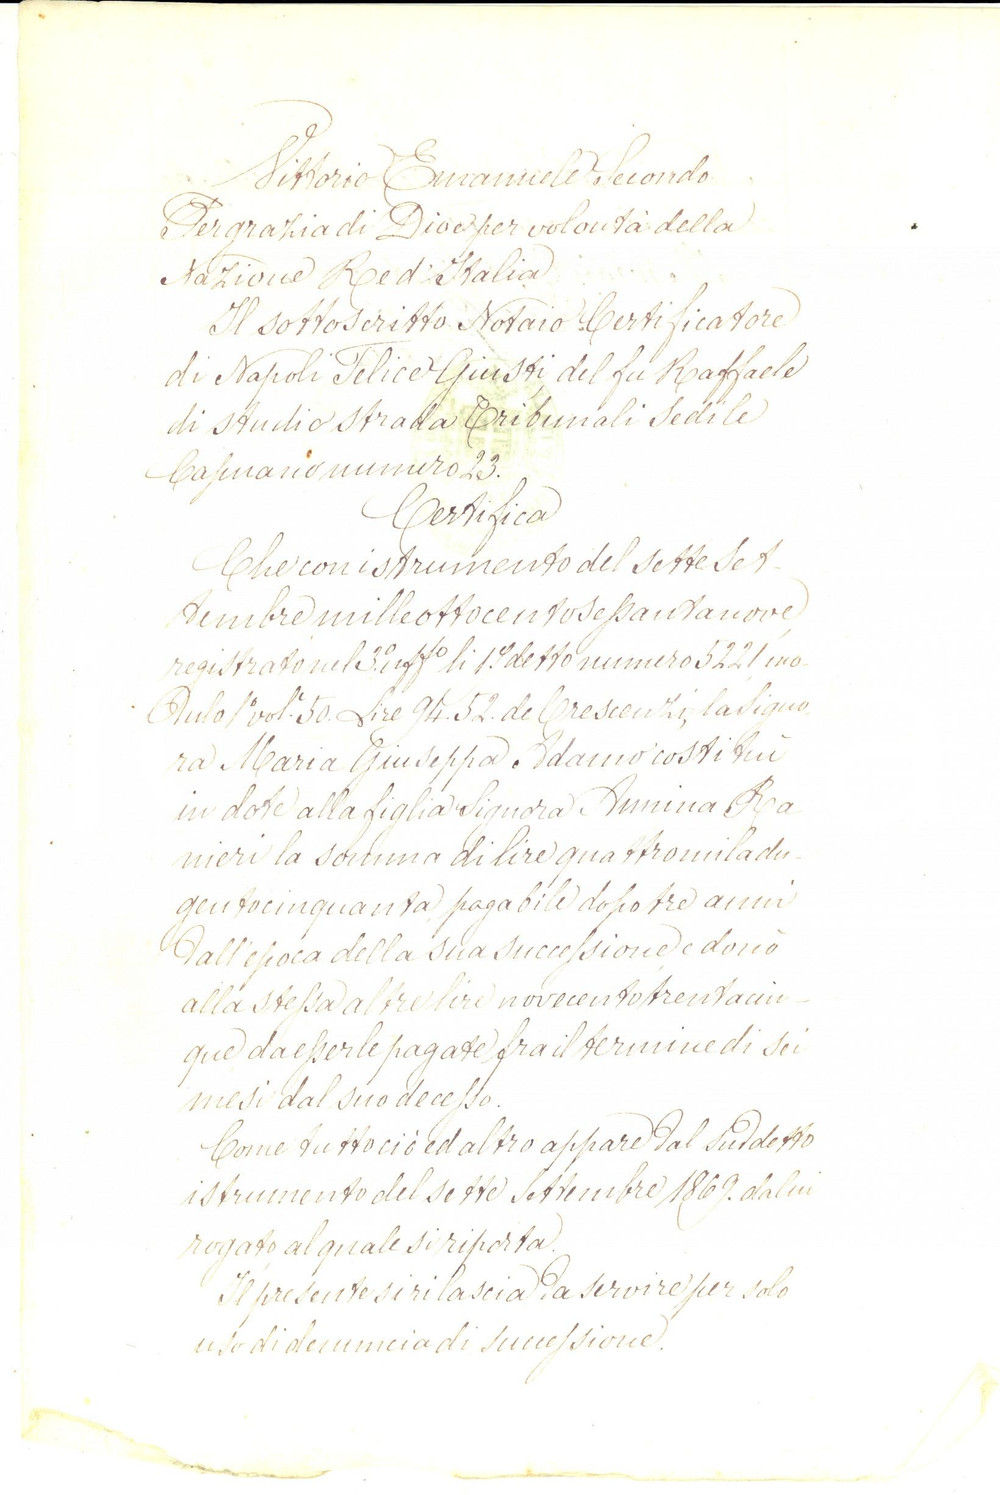 Vittorio Emanuele Secondo
Per grazia di Dio e per volontà della
Nazione Re d'Italia
Il sottoscritto Notaio Certificatore
di Napoli Felice Giusti, del fu Raffaele
di studio strada Tribunali Sedile
Capuano numero 23.
Certifica
Che con istrumento del sette Set-
tembre milleottocentosessantanove,
registrato nel 3º uffº li 1º detto numero 5221 mo-
dulo 1º vol. 50. Lire 94.52. de Crescenzi, la Signo
ra Maria Giuseppa Adamo costituì
in dote alla figlia Signora Annina Ra
nieri la somma di lire quattromiladu-
gentocinquanta, pagabile dopo tre anni
dall'epoca della sua successione, e donò
alla stessa altre lire novecentotrentacin-
que da esserle pagate fra il termine di sei
mesi dal suo decesso.
Come tutto ciò ed altro appare dal suddetto
istrumento del sette Settembre 1869. da lui
rogato, al quale si riporta.
Il presente si rilascia da servire per solo
uso di denuncia di successione.